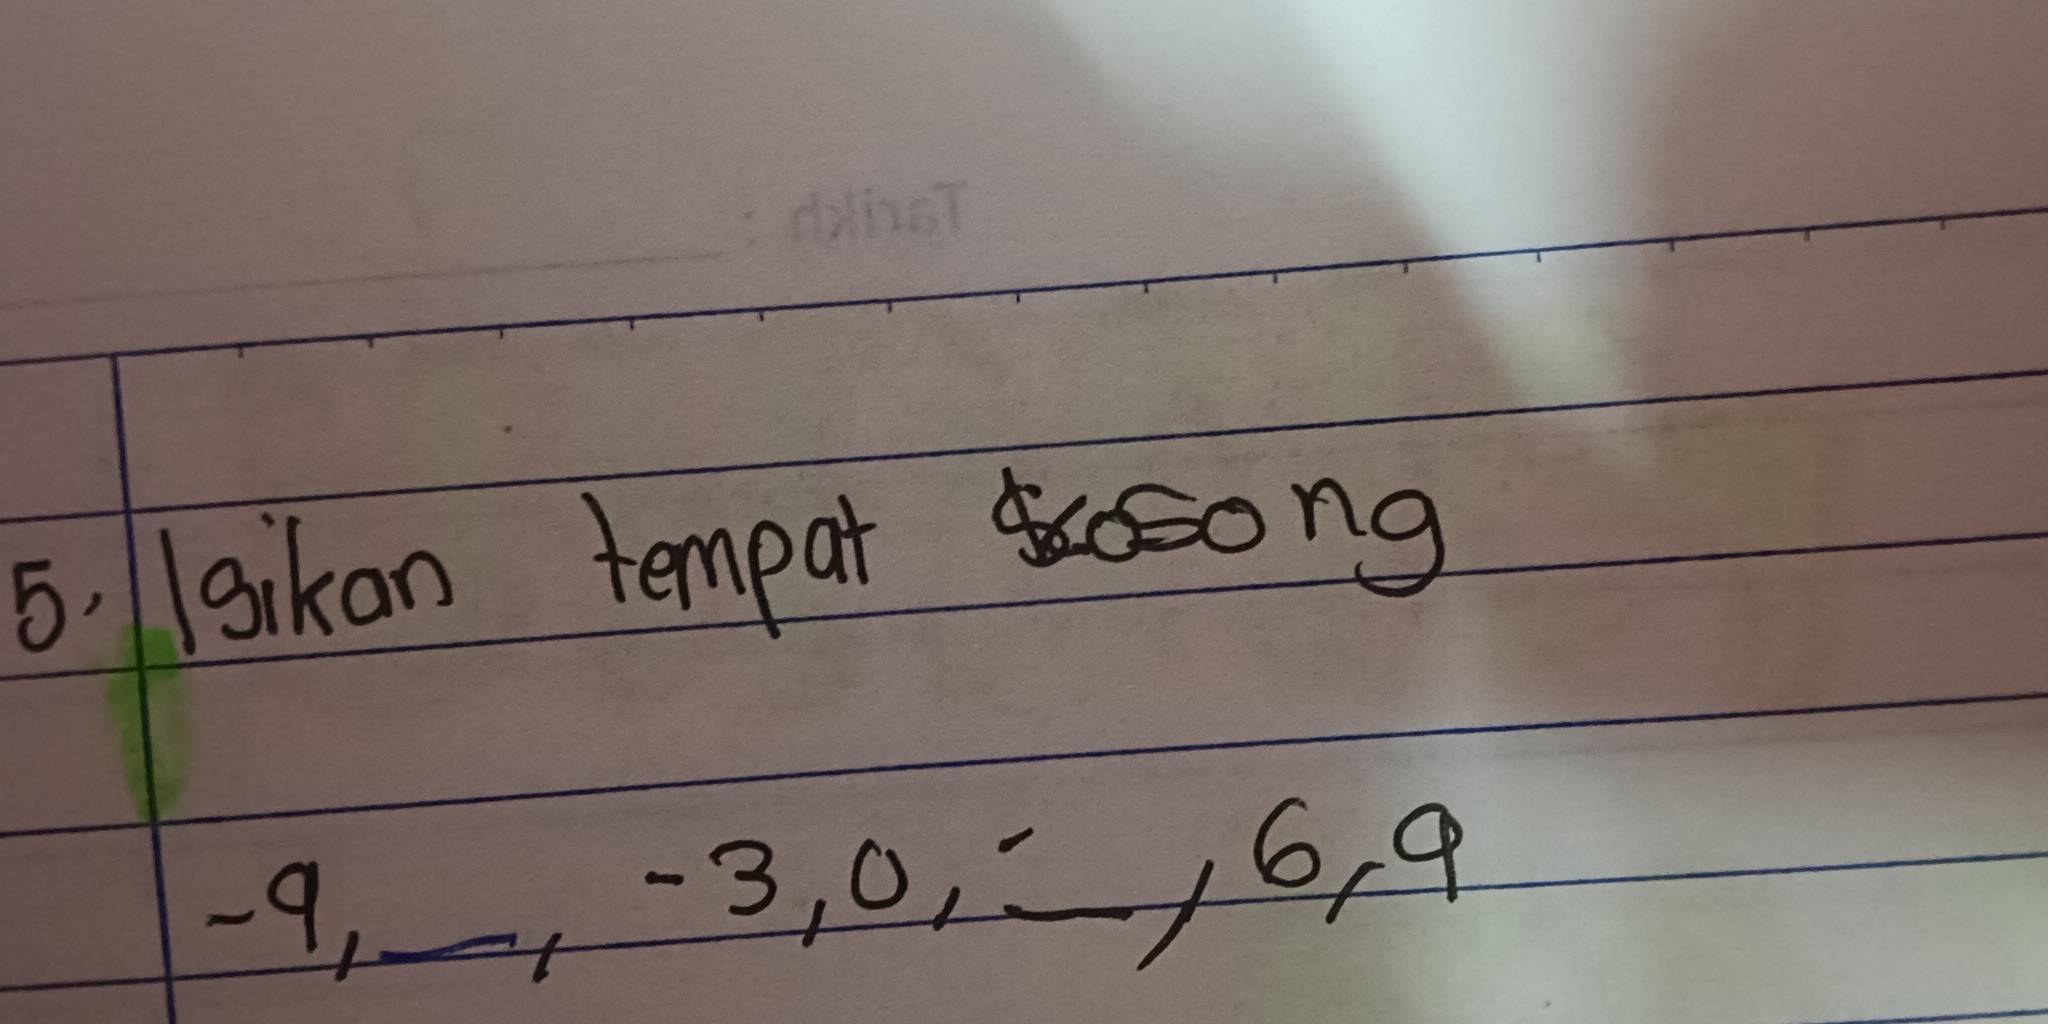 Tarikh :
5. Isikan tempat kosong
-9, __, -3, 0, -__, 6, 9